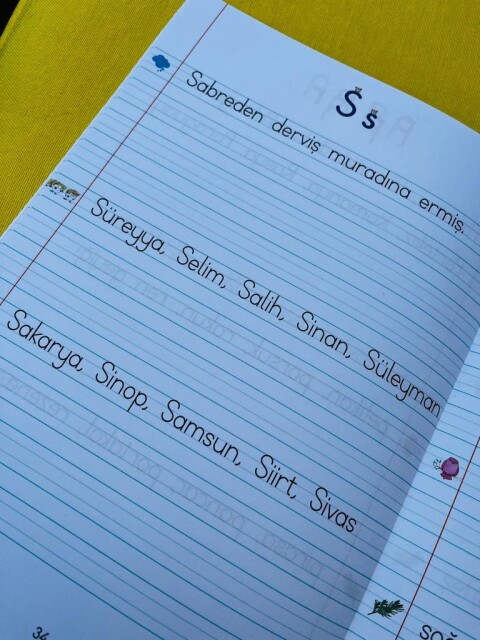 S s
Sabreden derviş muradına ermiş.
Süreyya, Selim, Salih, Sinan, Süleyman
Sakarya, Sinop, Samsun, Siirt, Sivas
34